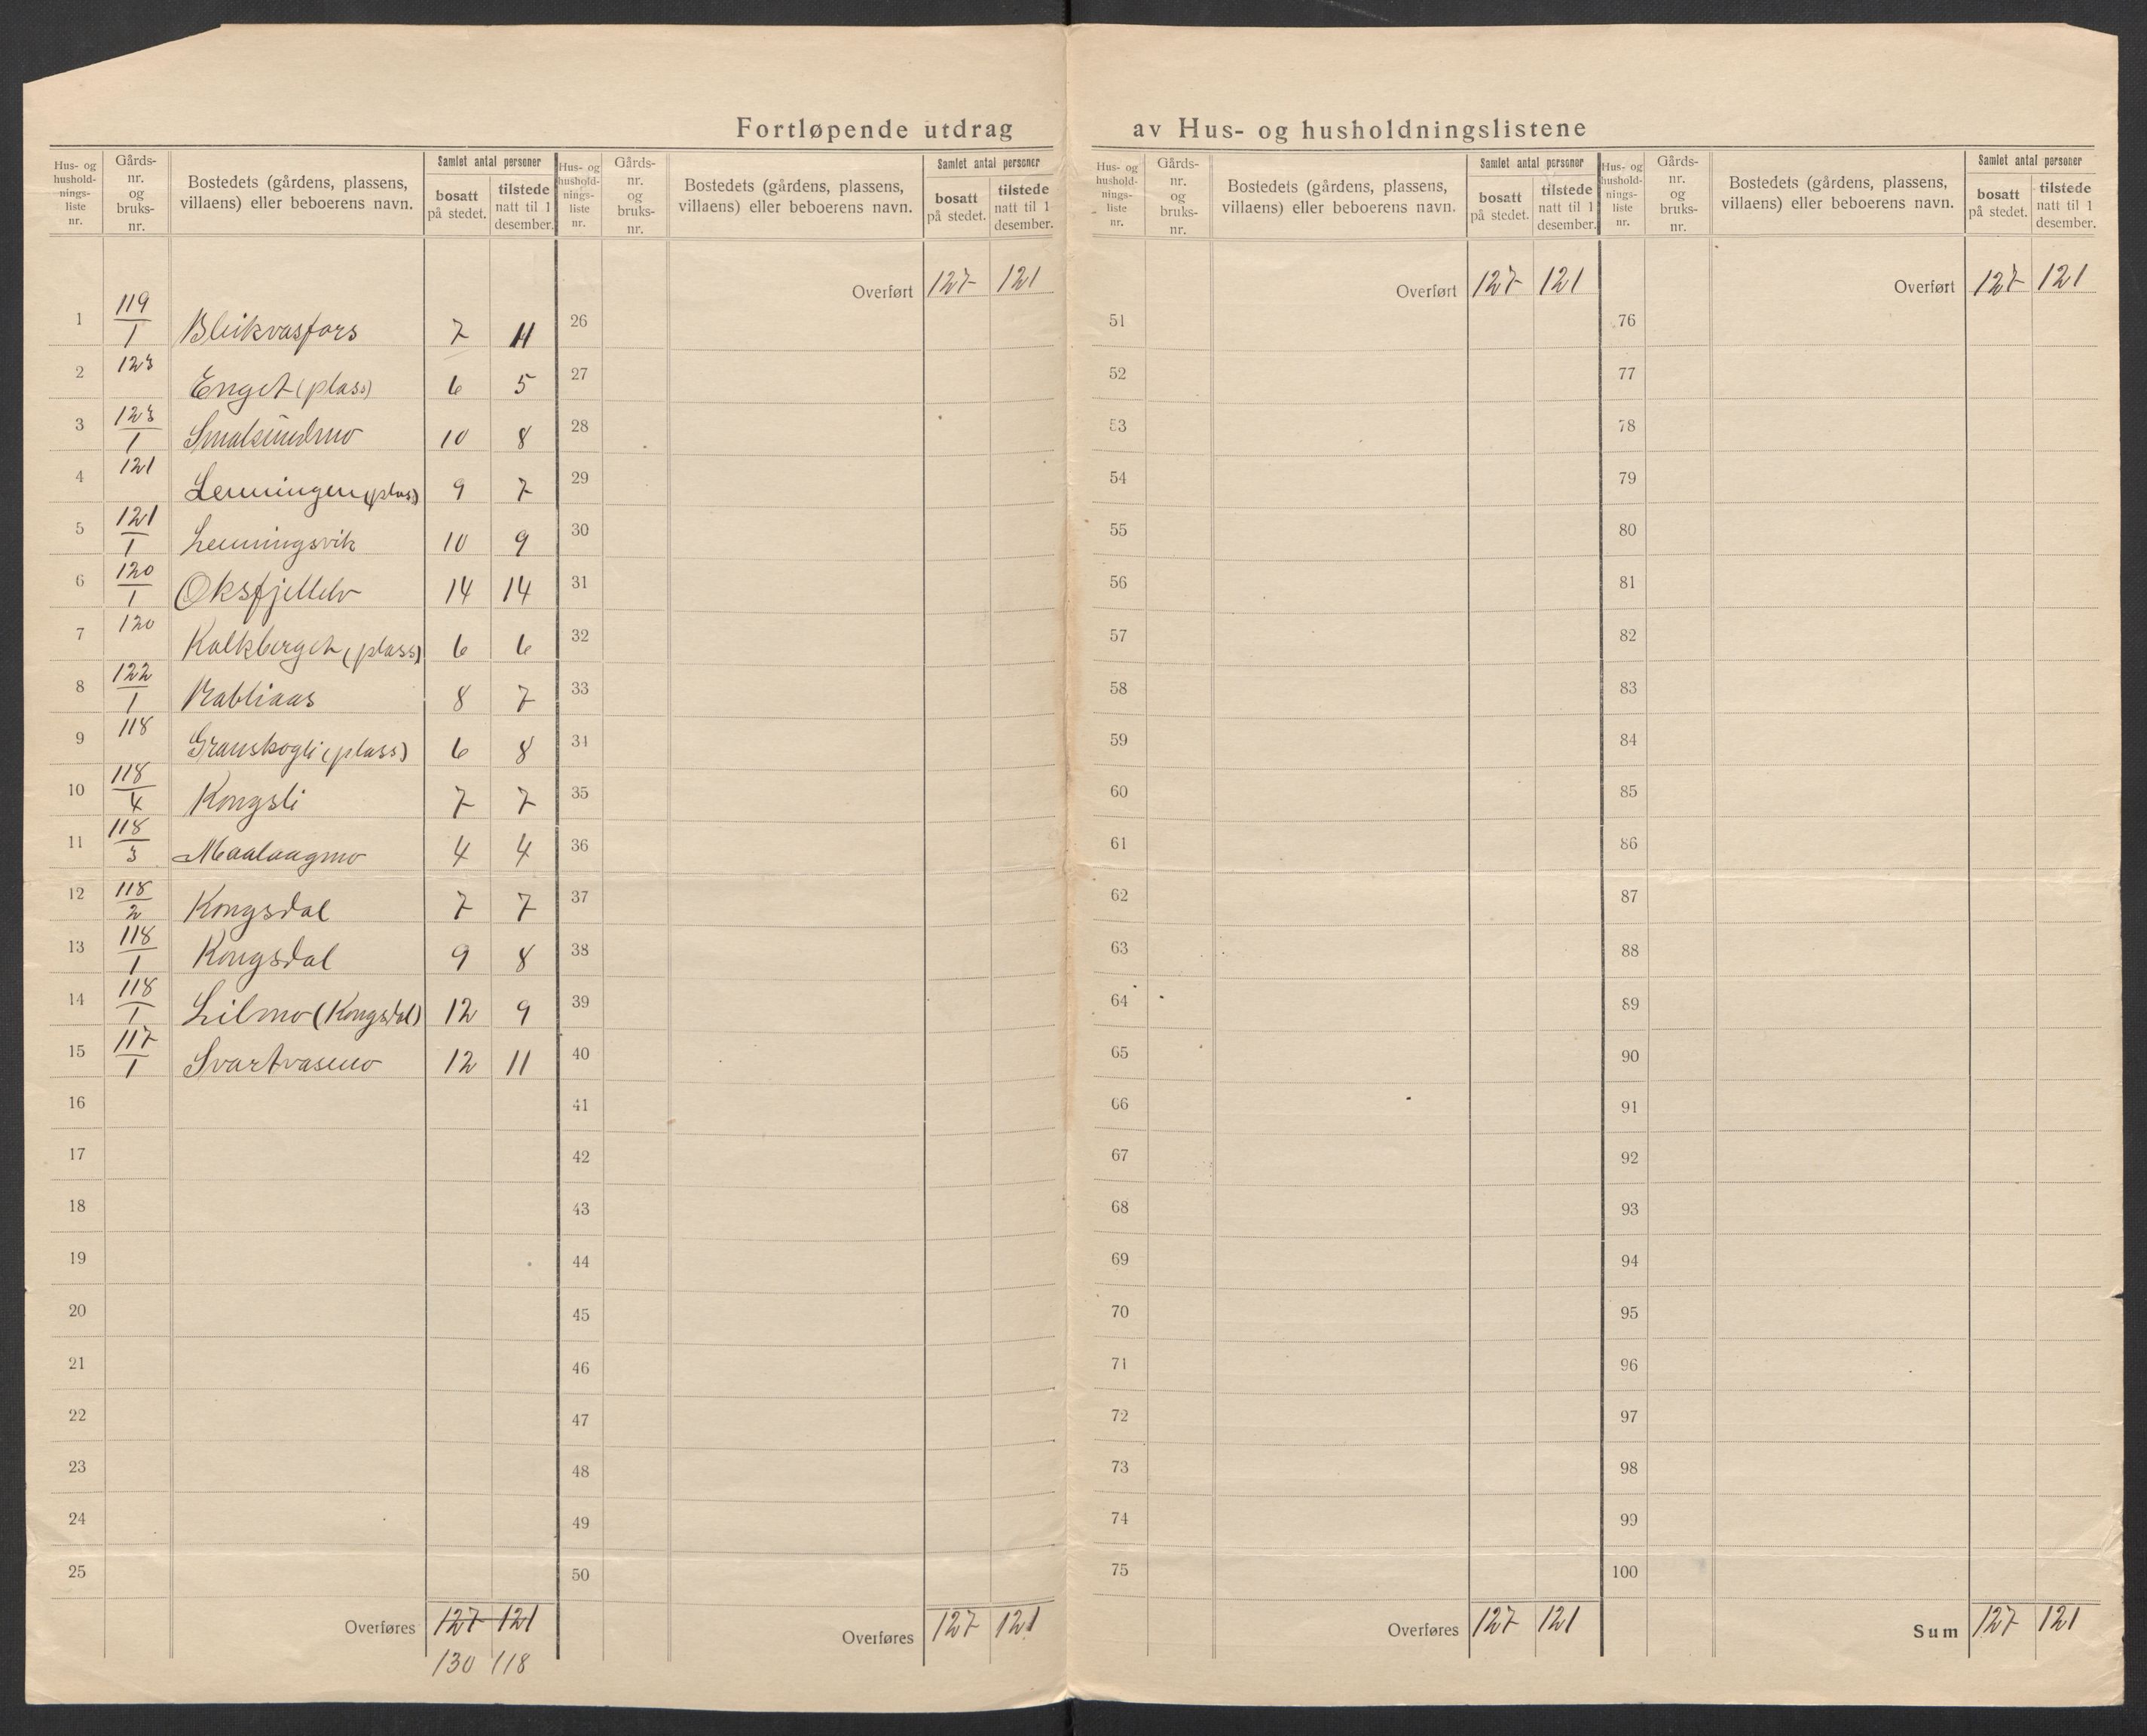 Fortløpende utdrag av Hus- og husholdningslistene
Hus- og husholdningsliste nr.
Gårds- nr. og bruks- nr.
Bostedets (gårdens, plassens, villaens) eller beboerens navn.
Samlet antal personer
bosatt på stedet.
tilstede natt til 1 desember.
1 119/1 Bleikvasfors 7 11
2 123 Enget (plass) 6 5
3 123/1 Smalsundmo 10 8
4 121 Lenningen (plass) 9 7
5 121/1 Lenningsvik 10 9
6 120/1 Oksfjellelv 14 14
7 120 Kalkberget (plass) 6 6
8 122/1 Rabliaas 8 7
9 118 Granskogli (plass) 6 8
10 118/4 Kongsli 7 7
11 118/3 Maalaagmo 4 4
12 118/2 Kongsdal 7 7
13 118/1 Kongsdal 9 8
14 118/1 Lilmo (Kongsdal) 12 9
15 117/1 Svartvasmo 12 11
16
17
18
19
20
21
22
23
24
25
Overføres 127 121
130 118
Hus- og husholdningsliste nr.
Gårds- nr. og bruks- nr.
Bostedets (gårdens, plassens, villaens) eller beboerens navn.
Samlet antal personer
bosatt på stedet.
tilstede natt til 1 desember.
Overført 127 121
26
27
28
29
30
31
32
33
34
35
36
37
38
39
40
41
42
43
44
45
46
47
48
49
50
Overføres 127 121
Hus- og husholdningsliste nr.
Gårds- nr. og bruks- nr.
Bostedets (gårdens, plassens, villaens) eller beboerens navn.
Samlet antal personer
bosatt på stedet.
tilstede natt til 1 desember.
Overført 127 121
51
52
53
54
55
56
57
58
59
60
61
62
63
64
65
66
67
68
69
70
71
72
73
74
75
Overføres 127 121
Hus- og husholdningsliste nr.
Gårds- nr. og bruks- nr.
Bostedets (gårdens, plassens, villaens) eller beboerens navn.
Samlet antal personer
bosatt på stedet.
tilstede natt til 1 desember.
Overført 127 121
76
77
78
79
80
81
82
83
84
85
86
87
88
89
90
91
92
93
94
95
96
97
98
99
100
Sum 127 121